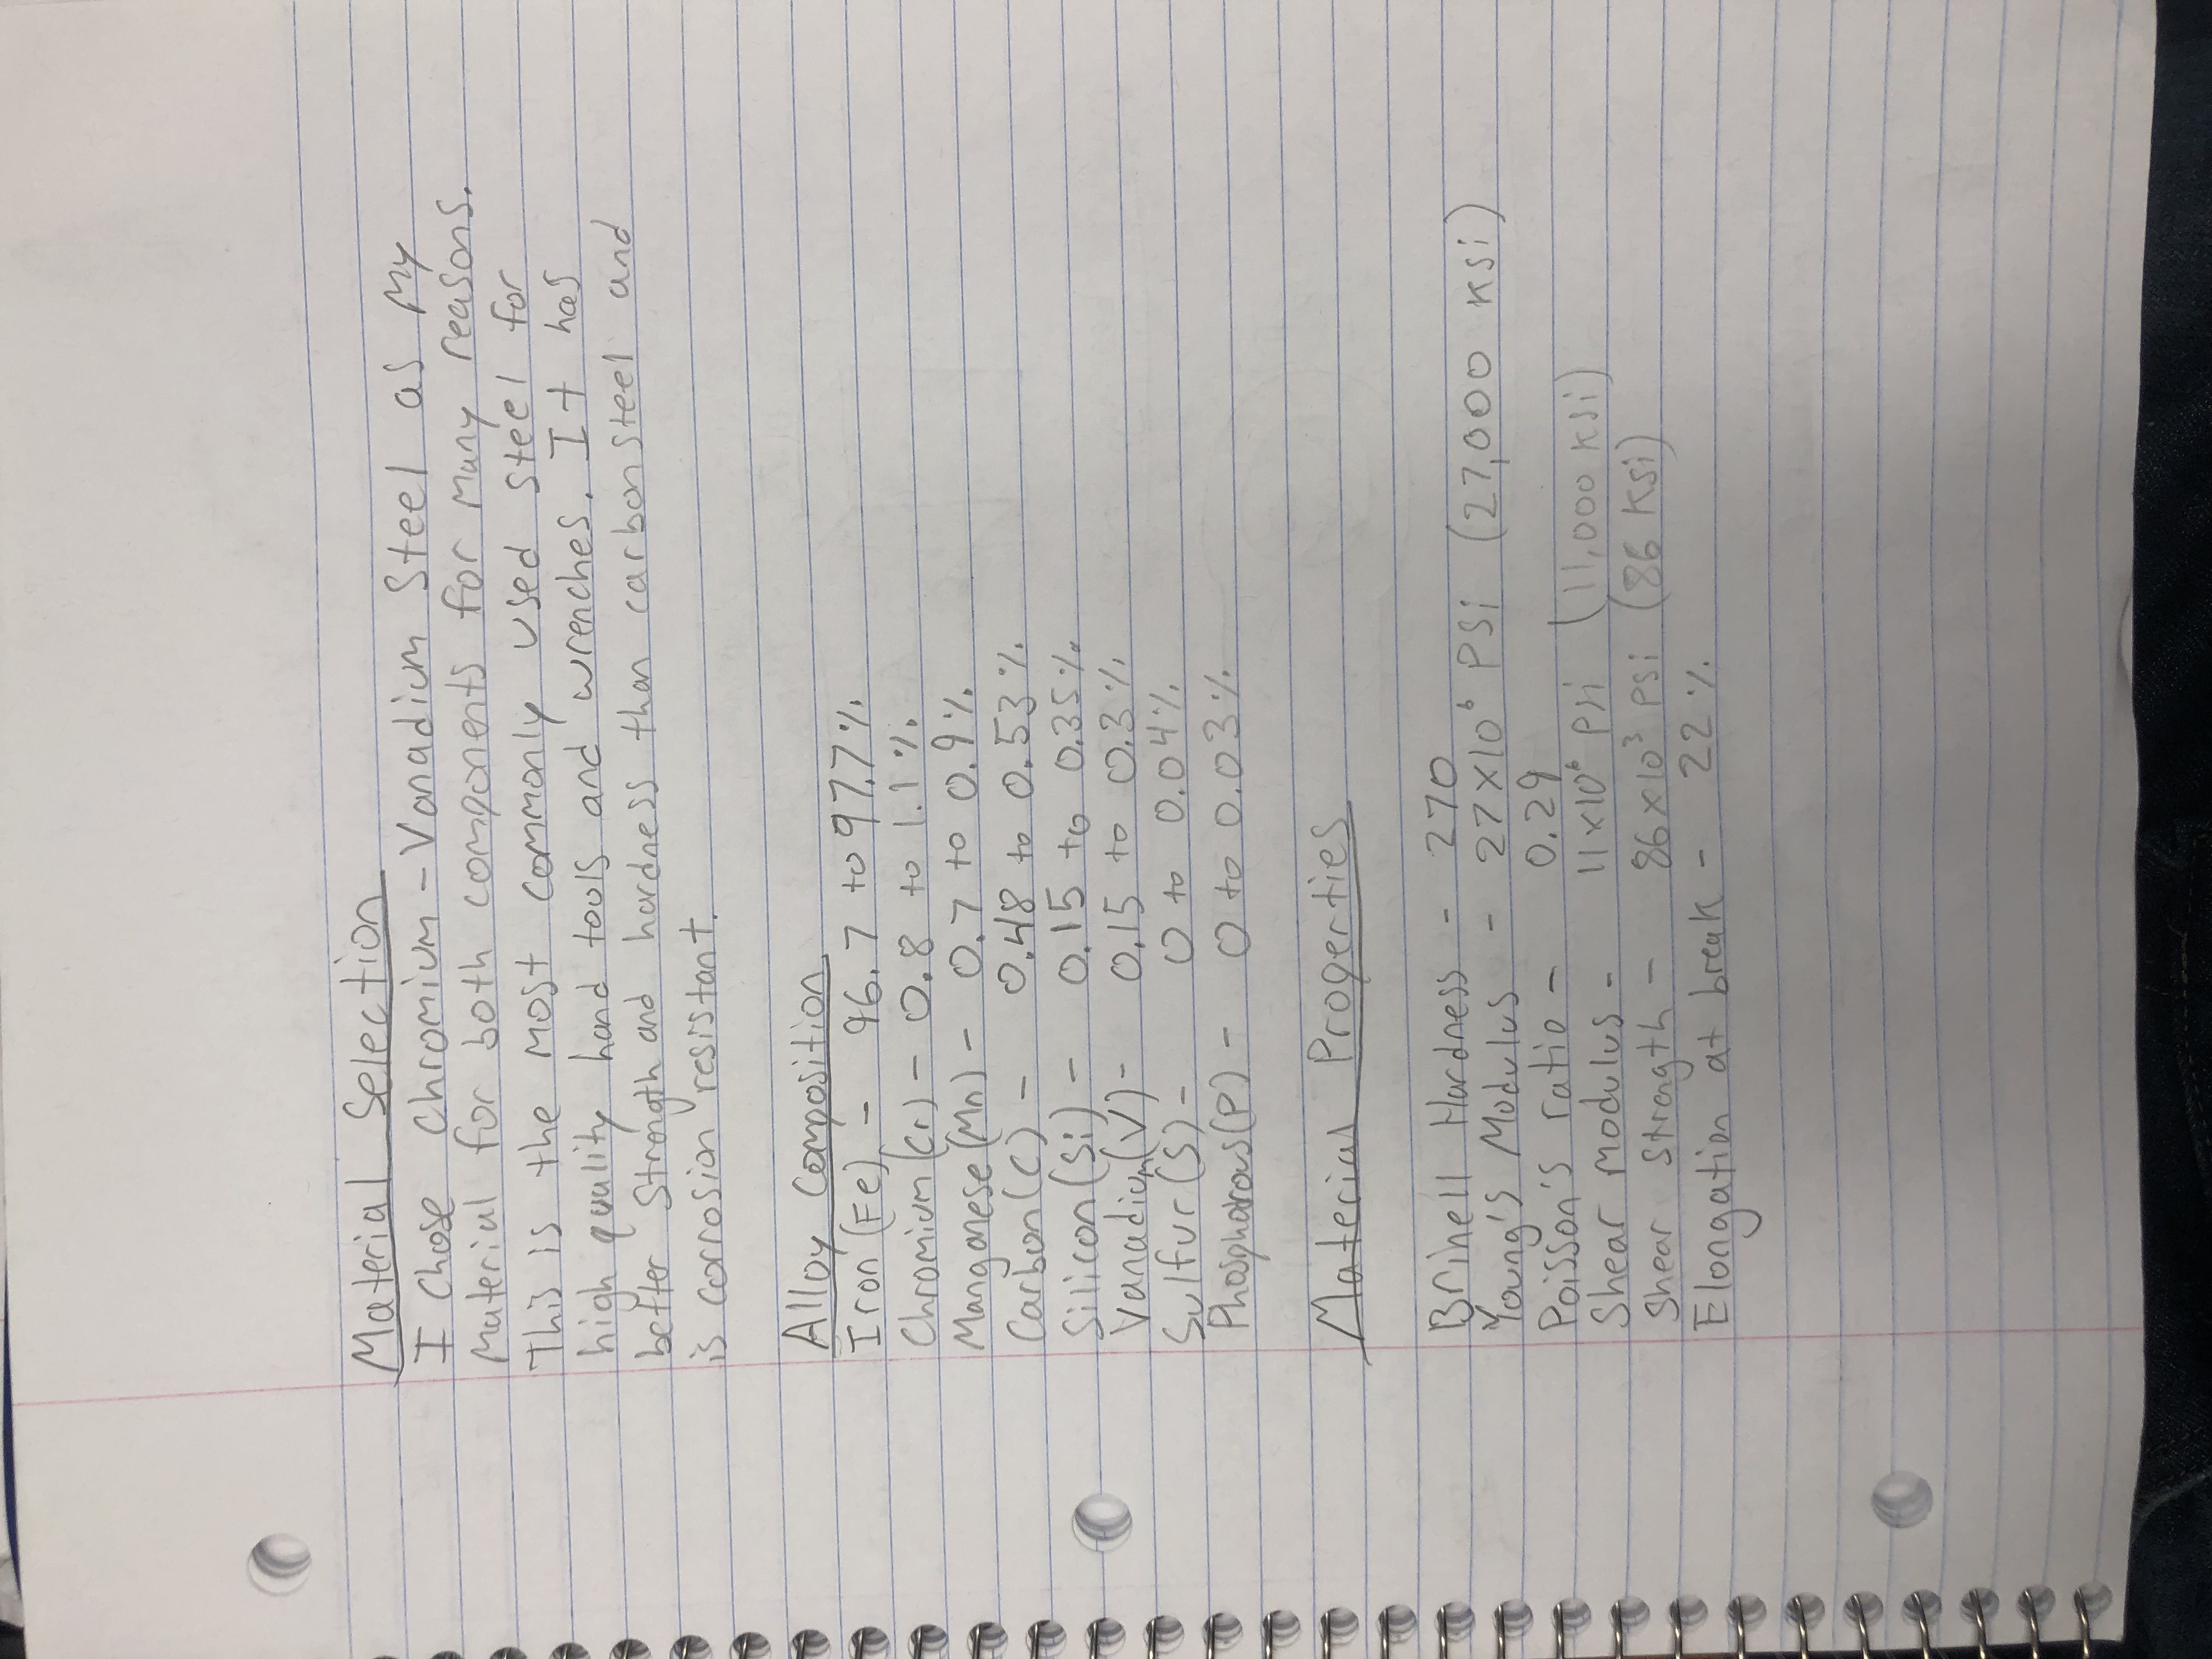 Material Selection
I chose Chromium-Vanadium Steel as my
Material for both components for many reasons.
This is the most commonly used steel for
high quality hand tools and wrenches. It has
better strength and hardness than carbon steel and
is corrosion resistant.
Alloy Composition
Iron (Fe) - 96.7 to 97.7%
Chromium (Cr) - 0.8 to 1.1%
Manganese (Mn) - 0.7 to 0.9%
Carbon (C) - 0.48 to 0.53%
Silicon (Si) - 0.15 to 0.35%
Vanadium (V) - 0.15 to 0.3%
Sulfur (S) - 0 to 0.04%
Phosphorous (P) - 0 to 0.03%
Material Properties
Brinell Hardness - 270
Young's Modulus - 27x10⁶ PSi (27,000 ksi)
Poisson's ratio - 0.29
Shear modulus - 11x10⁶ psi (11,000 ksi)
Shear strength - 86x10³ psi (86 ksi)
Elongation at break - 22%